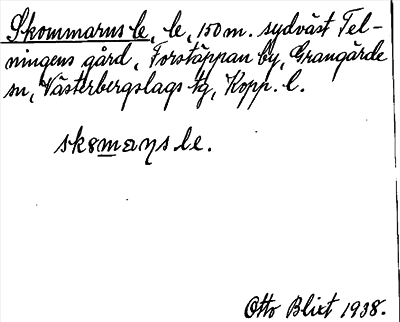 Skommarus le, le, 150 m. sydväst Tel-
ningens gård, Forstäppan by, Grangärde
sn, Västerbergslags tg, Kopp. l.
skomaŋsle.
Otto Blixt 1938.